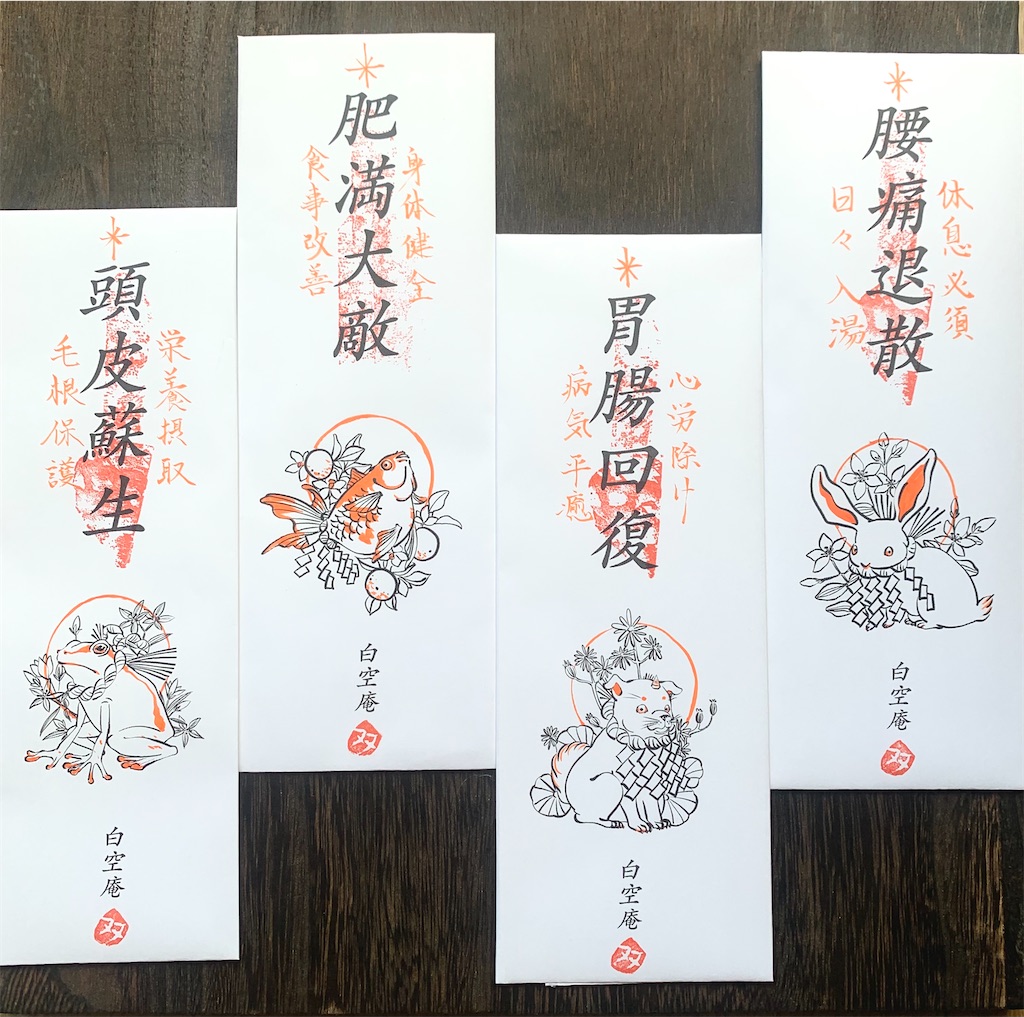 頭皮蘇生
栄養摂取
毛根保護
白空庵
双
肥満大敵
身体健全
食事改善
白空庵
双
胃腸回復
心労除け
病気平癒
白空庵
双
腰痛退散
休息必須
日々入湯
白空庵
双